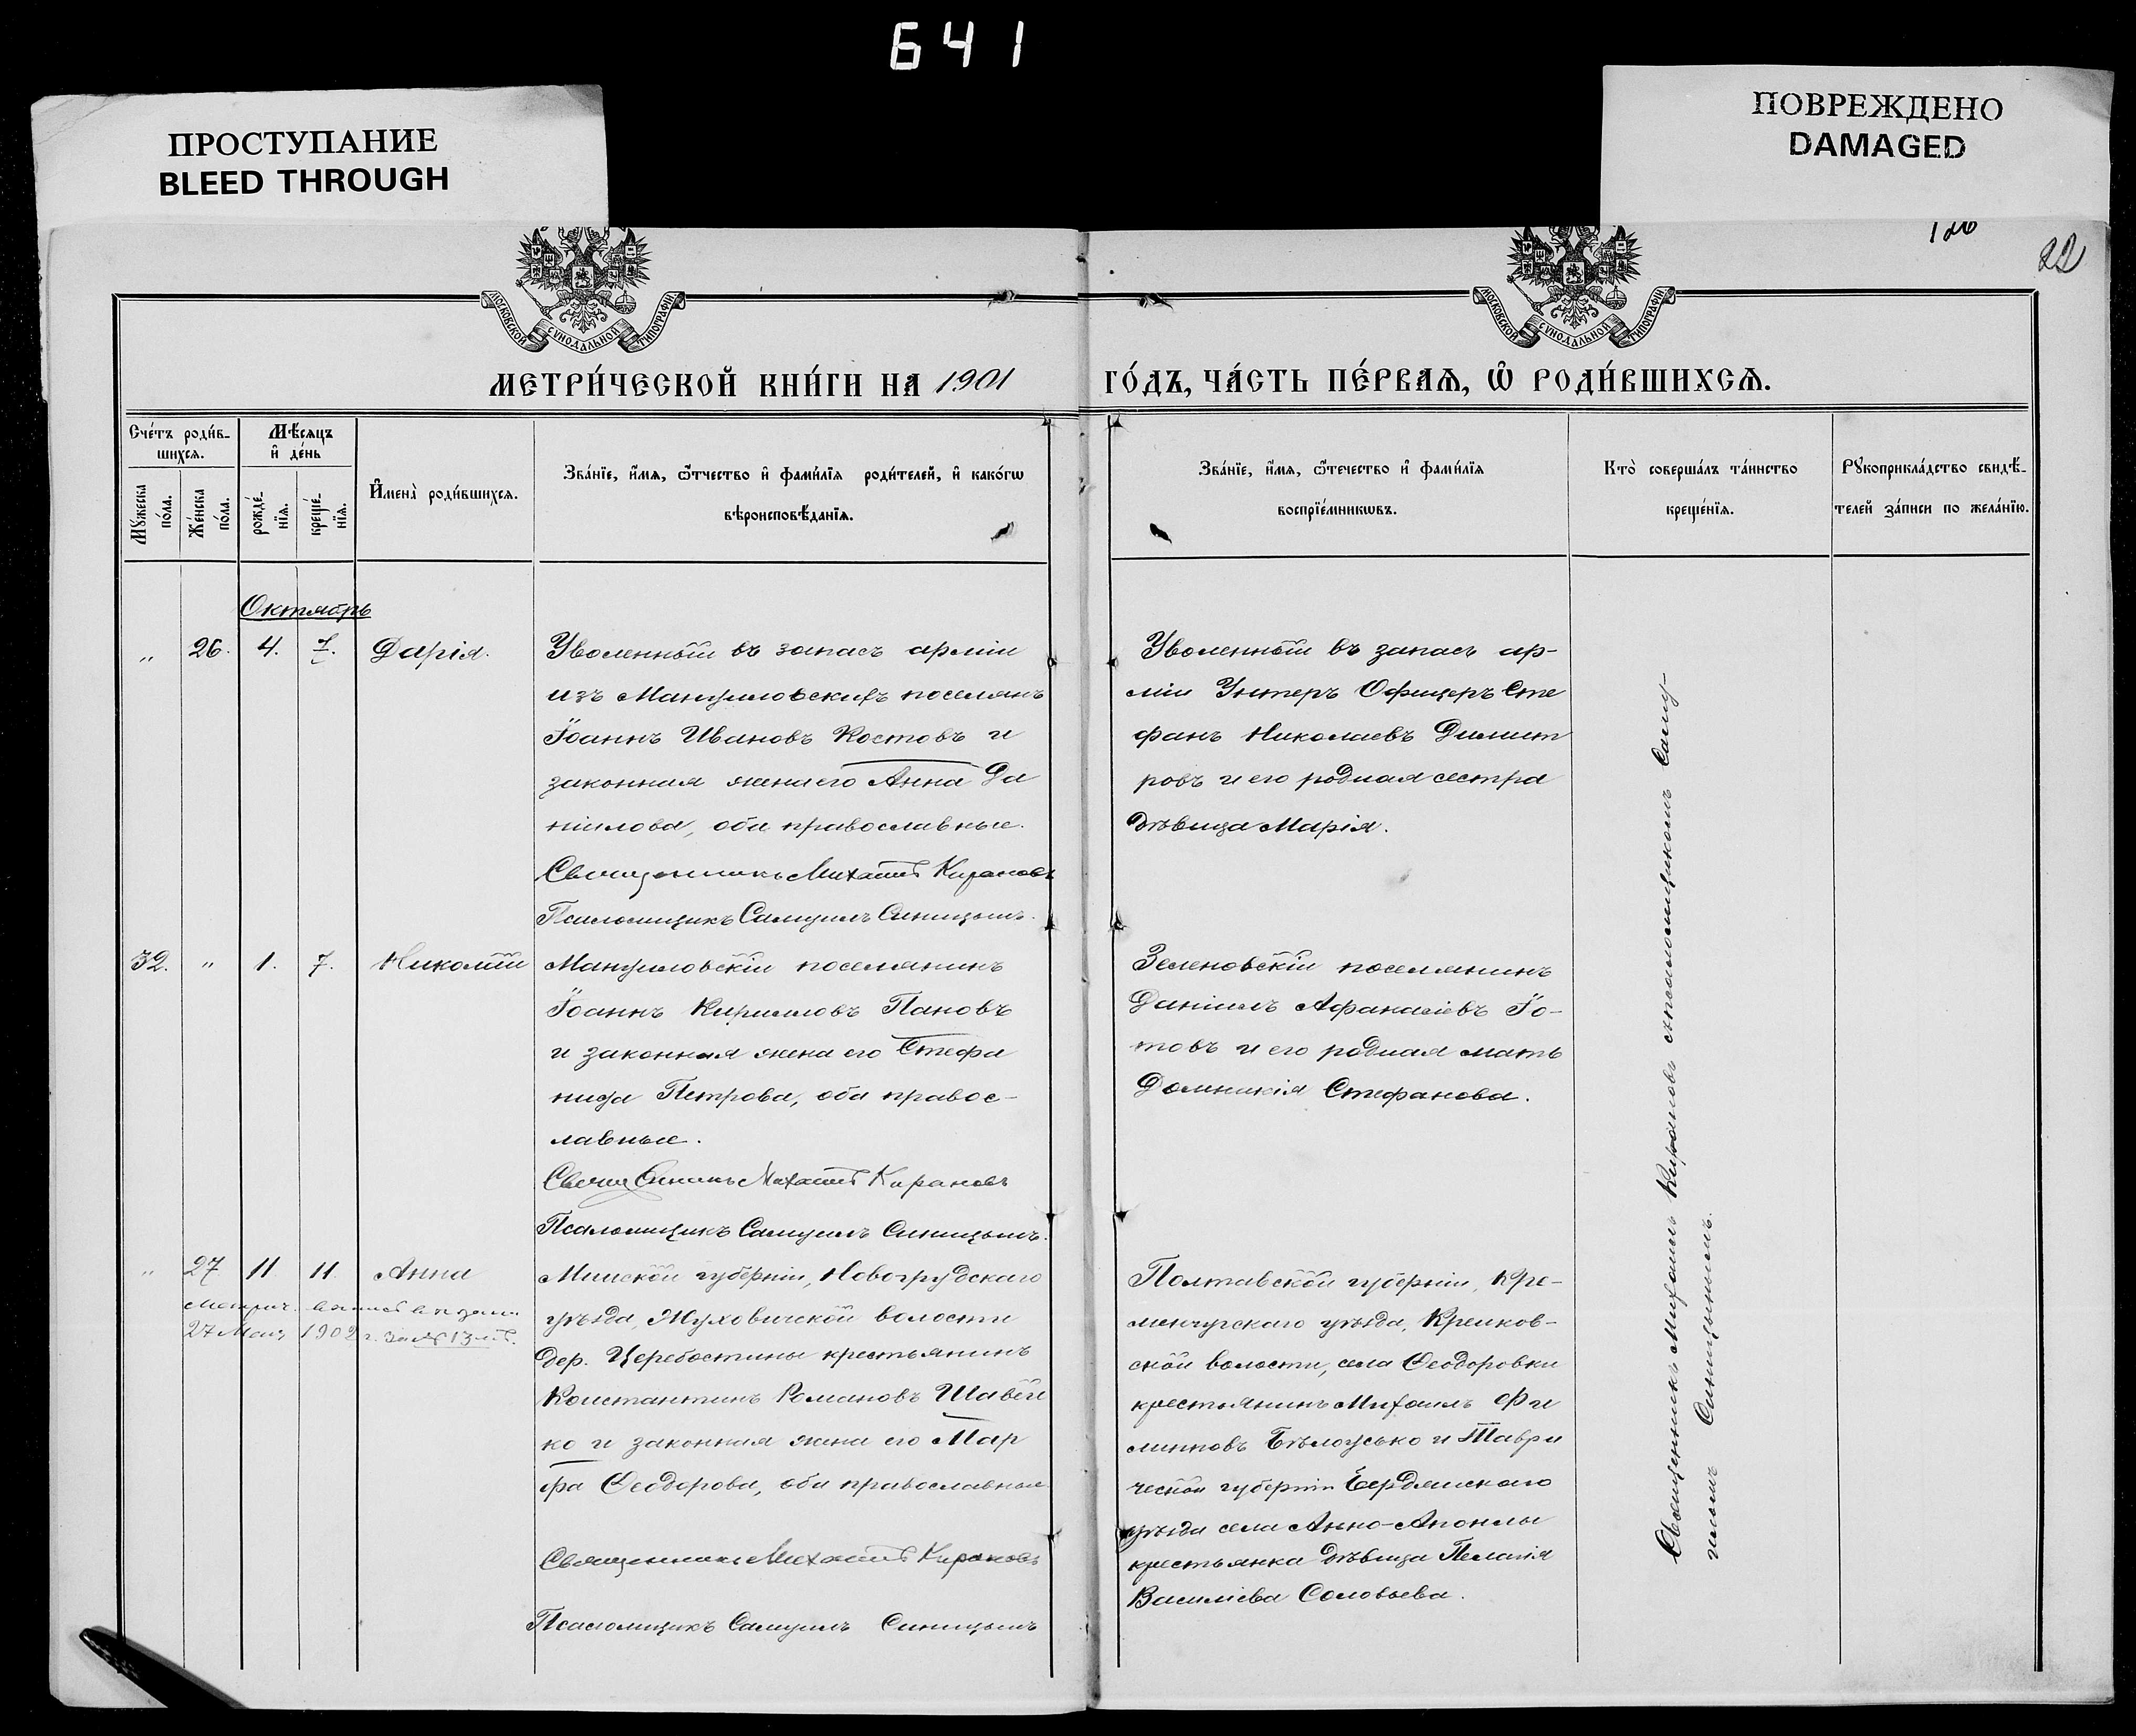 641
ПРОСТУПАНИЕ
BLEED THROUGH
ПОВРЕЖДЕНО
DAMAGED
22
МОСКОВСКОЙ СУНОДАЛЬНОЙ ТИПОГРАФІИ
МОСКОВСКОЙ СУНОДАЛЬНОЙ ТИПОГРАФІИ
МЕТРИ́ЧЕСКОЙ КНИ́ГИ НА 1901
ГО́ДЪ, ЧА́СТЬ ПЕ́РВАѦ, Ѡ҆ РОДИ́ВШИХСѦ.
Сче́тъ роди́в-
шихсѧ.
Мѣ́сѧцъ
и҆ де́нь
Мꙋ́жеска
по́ла.
Же́нска
по́ла.
рожде́-
нїѧ.
креще́-
нїѧ.
И҆мена̀ роди́вшихсѧ.
Зва́нїе, и҆́мѧ, ѻ҆́тчество и҆ фами́лїѧ роди́телей, и҆ како́гѡ
вѣроисповѣ́данїѧ.
Зва́нїе, и҆́мѧ, ѻ҆́течество и҆ фами́лїѧ
воспрїе́мникѡвъ.
Кто̀ соверша́лъ та́инство
креще́нїѧ.
Рꙋкоприкла́дство свидѣ́-
телей за́писи по жела́нїю.
Октябрь
„ 26. 4. 7. Дарія.
Уволенный въ запасъ арміи
изъ Мануиловскихъ поселянъ
Іоаннъ Ивановъ Костовъ и
законная жена его Анна Да
ніилова, оба православные.
Священникъ Михаилъ Кирановъ
Псаломщикъ Самуилъ Синицынъ.
Уволенный въ запасъ ар-
міи Унтеръ Офицеръ Сте
фанъ Николаевъ Димит
ровъ и его родная сестра
дѣвица Марія.
32. „ 1. 7. Николай
Мануиловскій поселянинъ
Іоаннъ Кирилловъ Пановъ
и законная жена его Стефа
нида Петрова, оба правос-
лавные.
Священникъ Михаилъ Кирановъ
Псаломщикъ Самуилъ Синицынъ.
Зеленовскій поселянинъ
Даніилъ Афанасіевъ Іо-
товъ и его родная мать
Домникія Стефанова.
„ 27 11 11. Анна
Метрич.
27 Мая 1902 г. за № 13
Минской губерніи, Новогрудскаго
уѣзда, Жуховичской волости
дер. Церебостины крестьянинъ
Константинъ Романовъ Шавей
ко и законная жена его Мар
фа Ѳеодорова, оба православные
Священникъ Михаилъ Кирановъ
Псаломщикъ Самуилъ Синицынъ
Полтавской губерніи, Кре-
менчугскаго уѣзда, Крюков-
ской волости, села Ѳеодоровки
крестьянинъ Михаилъ Фи
липповъ Бѣлоусько и Таври
ческой губерніи Бердянскаго
уѣзда села Анно-Апонлы
крестьянка дѣвица Пелагія
Василіева Соловьева.
Священникъ Михаилъ Кирановъ съ псаломщикомъ Саму-
иломъ Синицынымъ.